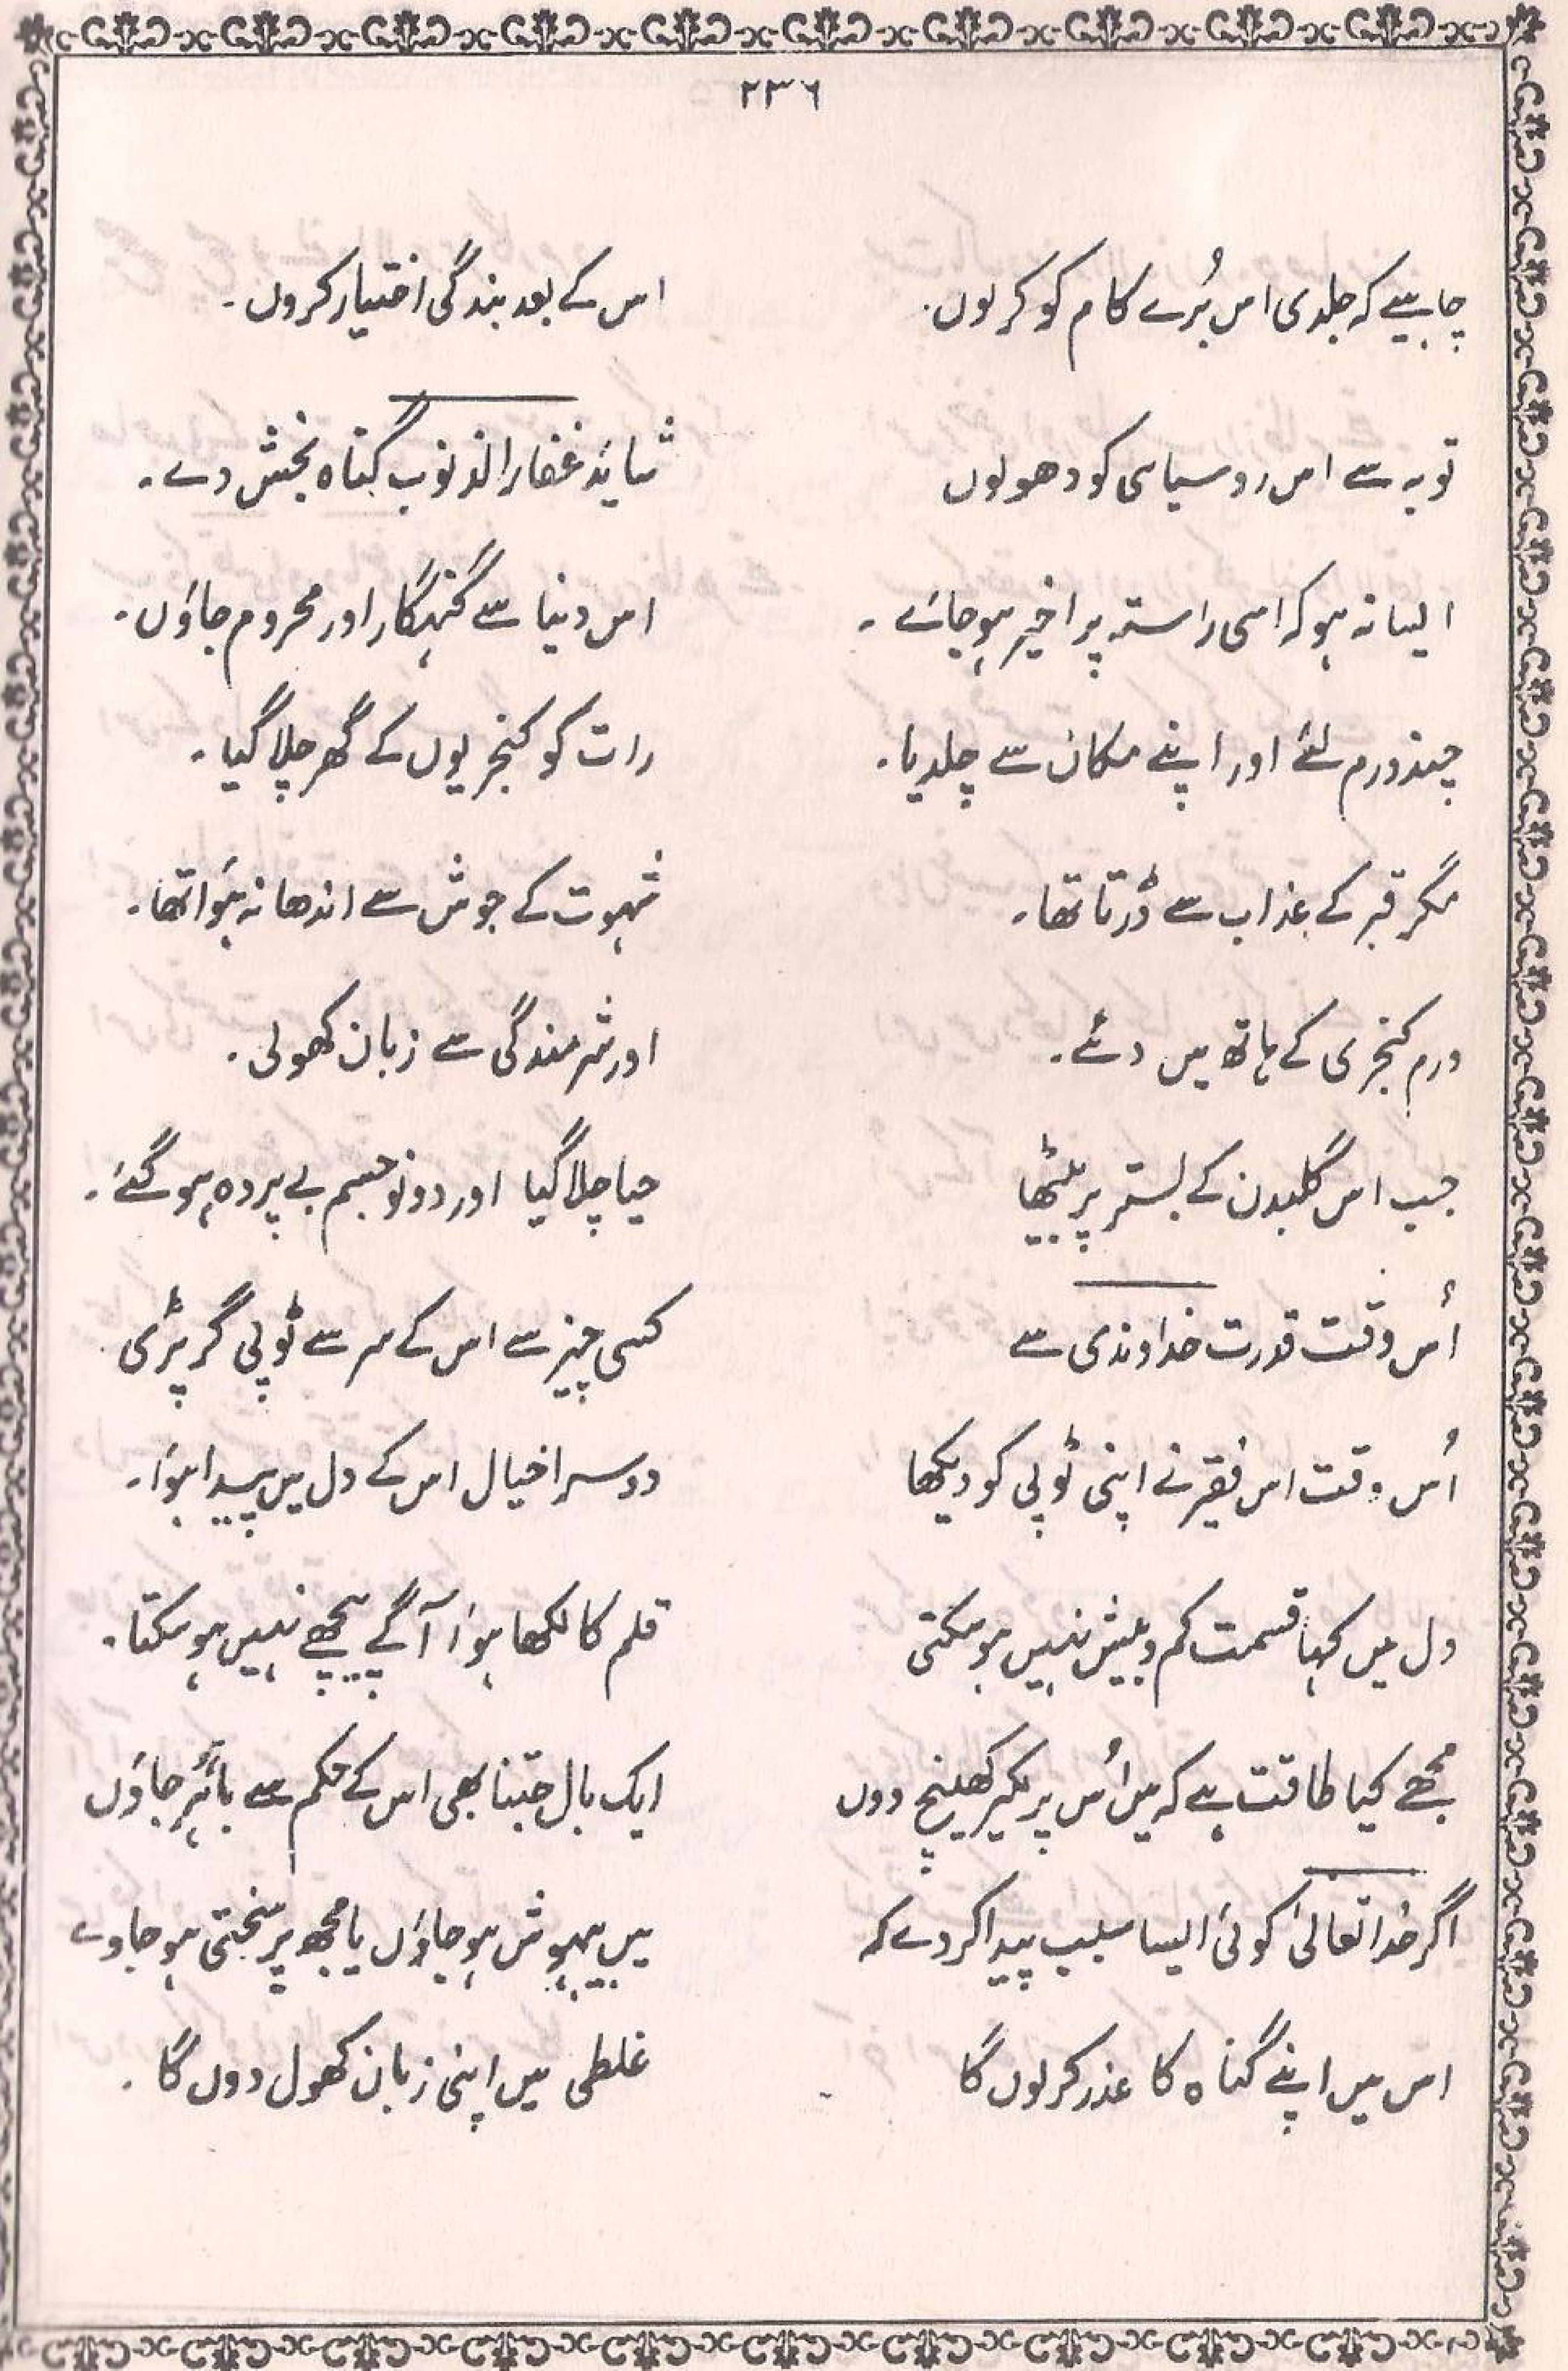 ۲۳۶
چاہیے کہ جلدی اس بُرے کام کو کر لوں۔ اس کے بعد بندگی اختیار کروں۔
توبہ سے اس رو سیاسی کو دھو لوں شائد غفار الذنوب گناہ بخش دے۔
ایسا نہ ہو کہ اسی راستہ پر اخیر ہو جائے۔ اس دنیا سے گنہگار اور محروم جاؤں۔
چند درم لئے اور اپنے مکان سے چلدیا۔ رات کو کنجریوں کے گھر چلا گیا۔
مگر قبر کے عذاب سے ڈرتا تھا۔ شہوت کے جوش سے اندھا نہ ہوَا تھا۔
درم کنجری کے ہاتھ میں دئے۔ اور شرمندگی سے زبان کھولی۔
جب اس گلبدن کے بستر پر بیٹھا حیا چلا گیا اور دونو جسم بے پردہ ہو گئے۔
اُس وقت قدرت خداوندی سے کسی چیز سے اس کے سر سے ٹوپی گر پڑی
اُس وقت اس فقیر نے اپنی ٹوپی کو دیکھا دوسرا خیال اس کے دل میں پیدا ہوَا۔
دل میں کہا قسمت کم و بیش نہیں ہو سکتی قلم کا لکھا ہوَا آگے پیچھے نہیں ہو سکتا۔
مجھے کیا طاقت ہے کہ میں اُس پر لکیر کھینچ دوں ایک بال جتنا بھی اس کے حکم سے باہر جاؤں
اگر خدا تعالیٰ کوئی ایسا سبب پیدا کر دے کہ میں بیہوش ہو جاؤں یا مجھ پر سختی ہو جاوے
اس میں اپنے گناہ کا عذر کر لوں گا غلطی میں اپنی زبان کھول دوں گا۔